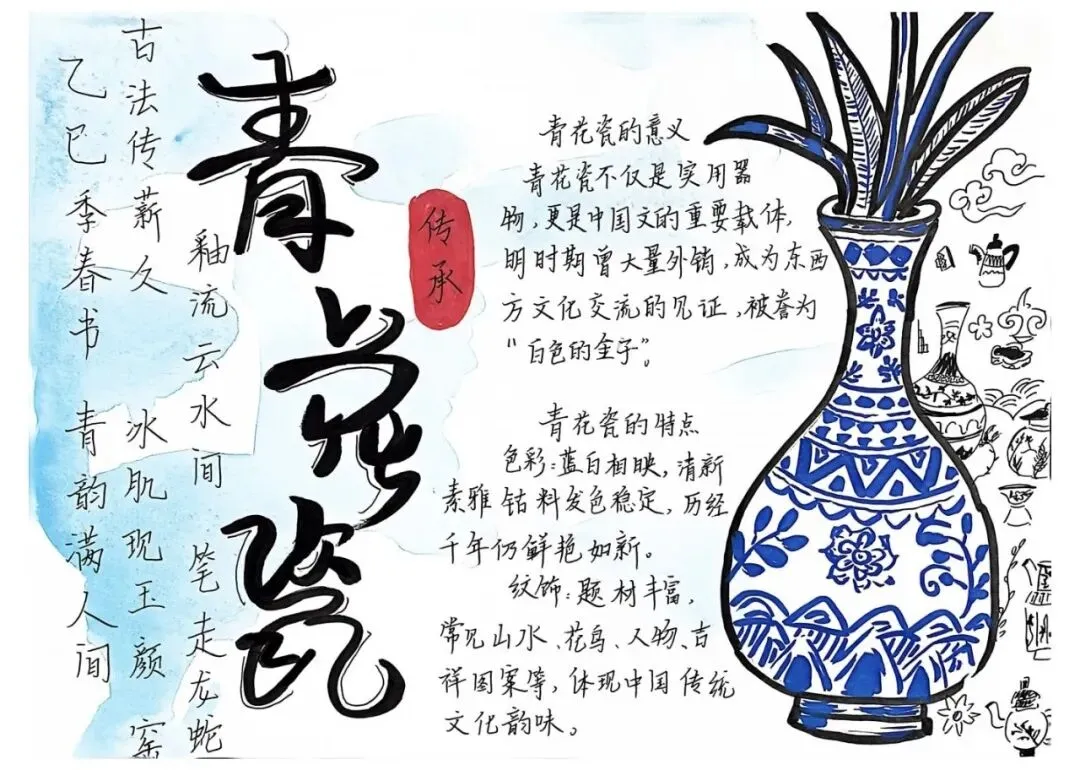 青花瓷
传承
釉流云水间 笔走龙蛇
古法传薪久 冰肌现玉颜 窑
乙巳季春书 青韵满人间
青花瓷的意义
青花瓷不仅是实用器
物,更是中国文的重要载体,
明时期曾大量外销,成为东西
方文化交流的见证,被誉为
“白色的金子”。
青花瓷的特点
色彩:蓝白相映,清新
素雅 钴料发色稳定,历经
千年仍鲜艳如新。
纹饰:题材丰富,
常见山水、花鸟、人物、吉
祥图案等,体现中国传统
文化韵味。